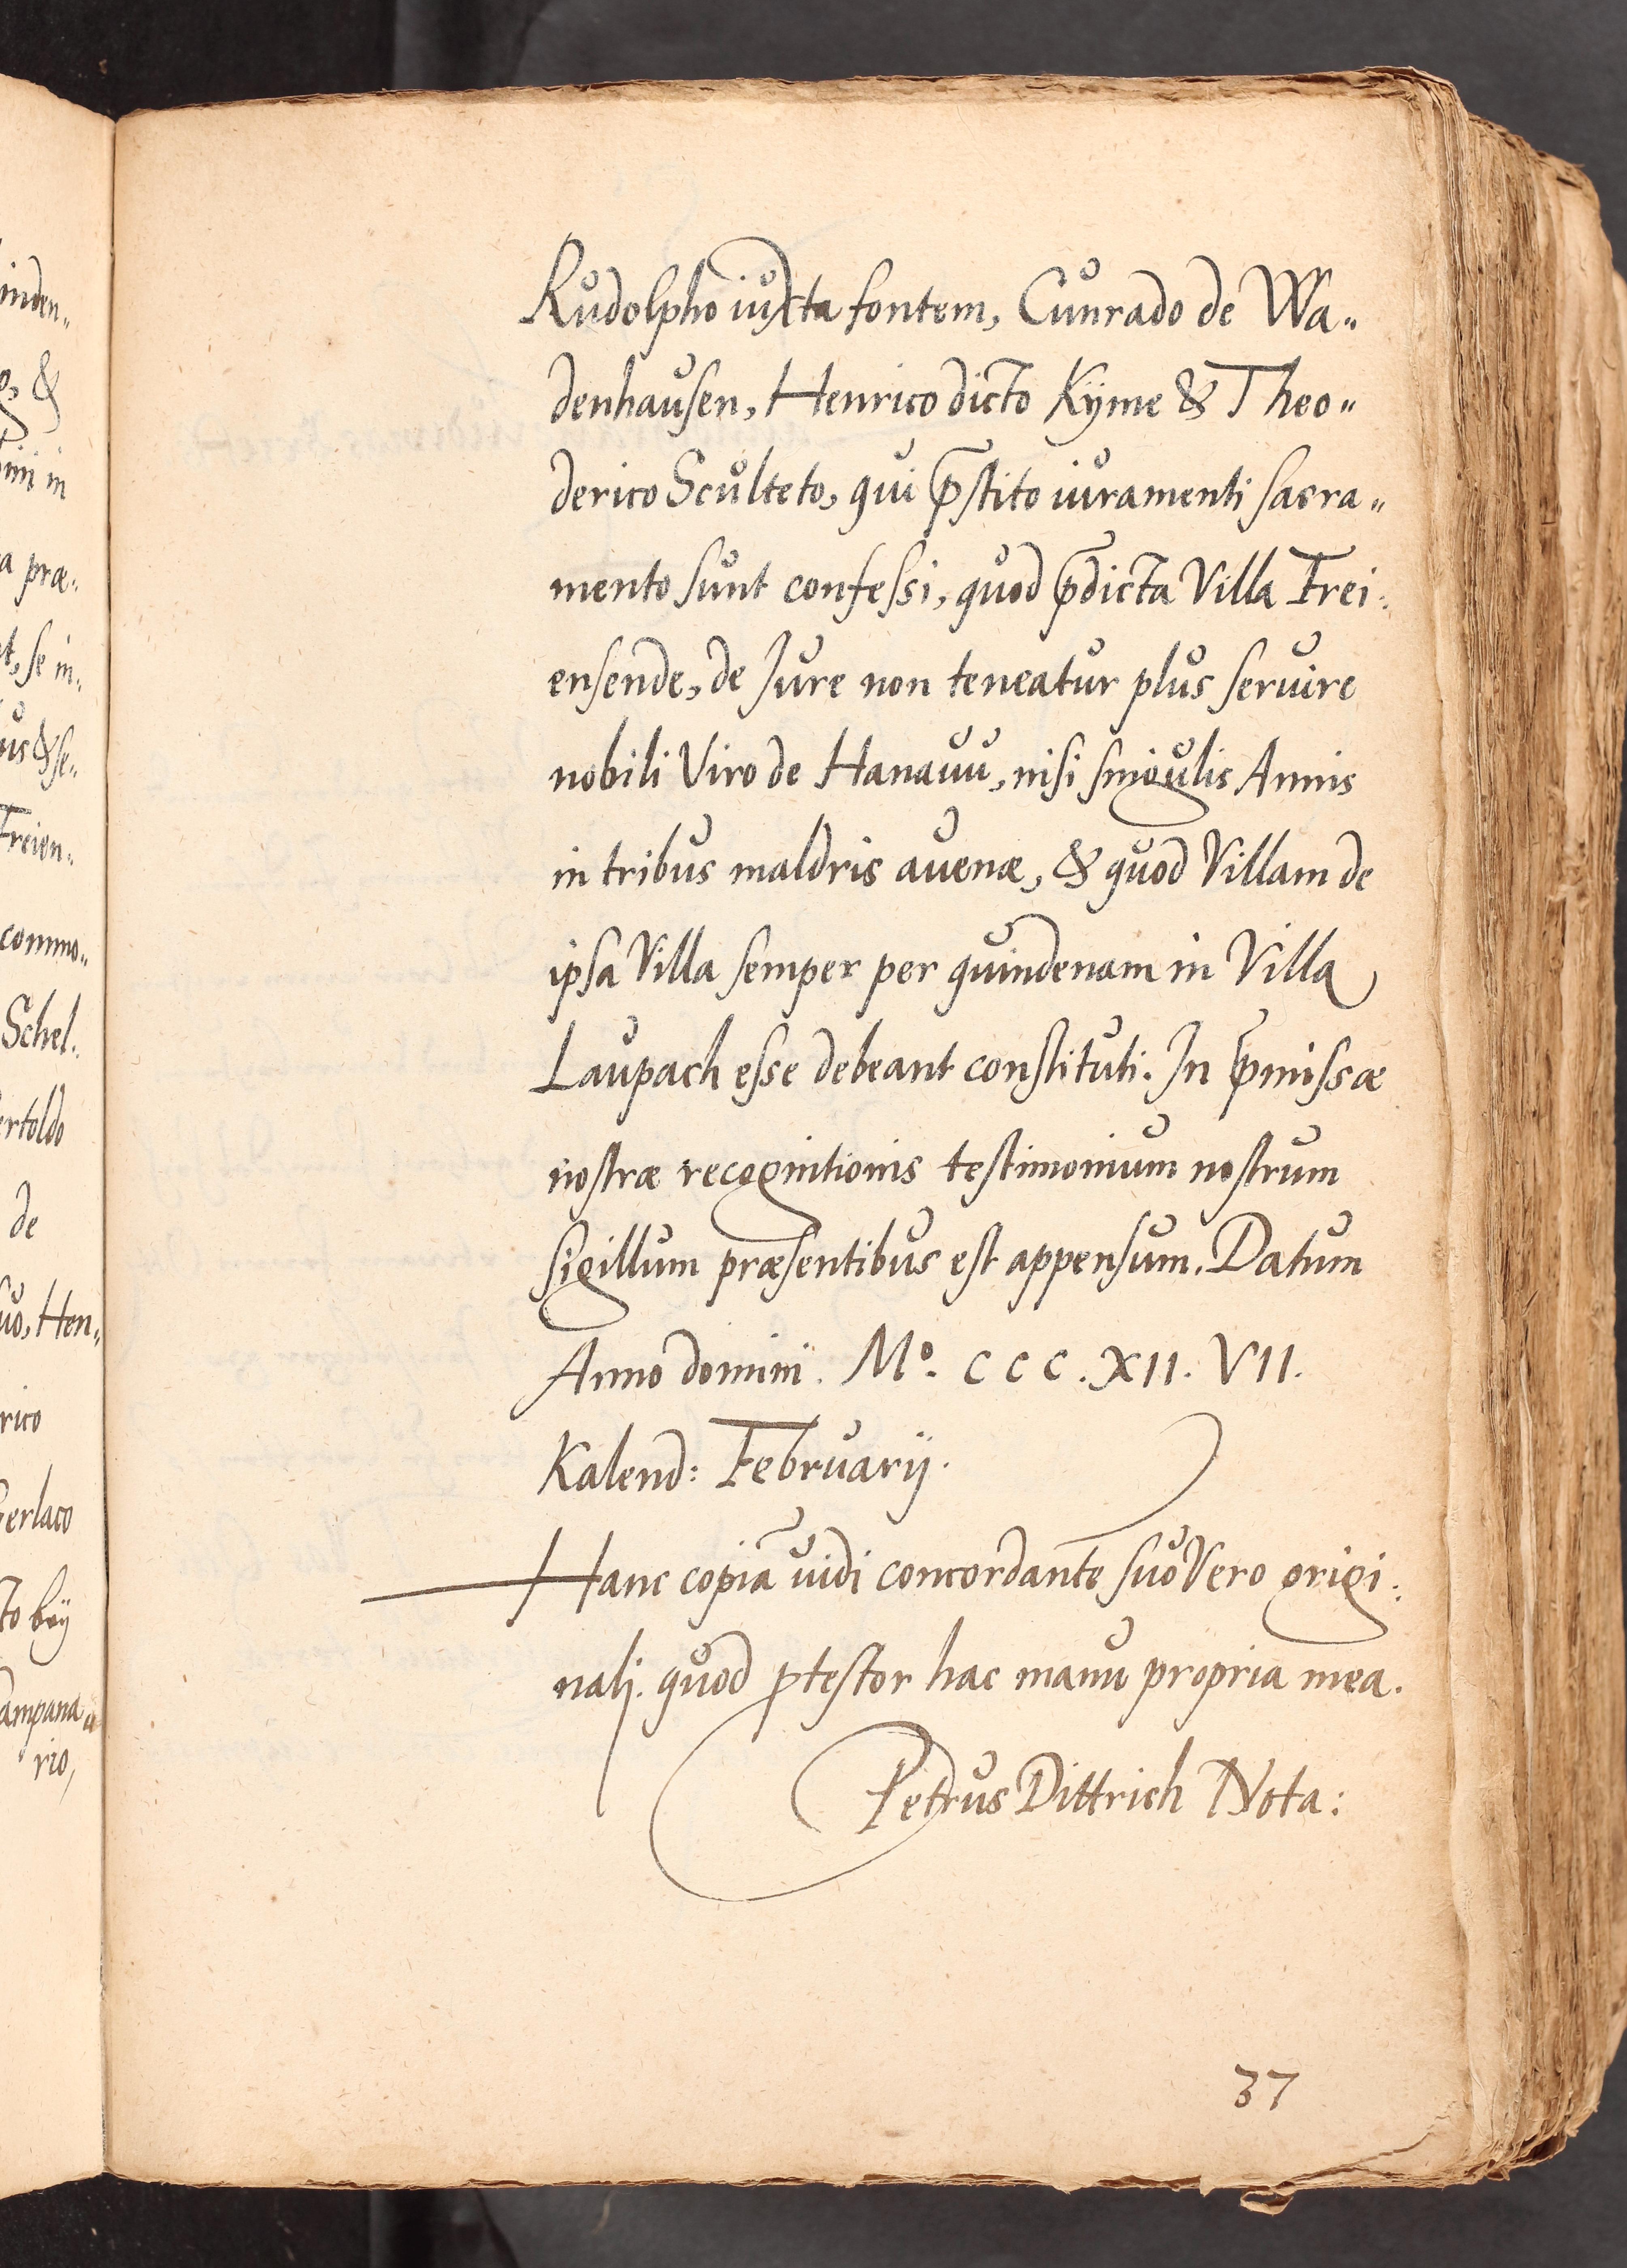 inden„
Rudolpho iuxta fontem, Cunrado de Wa„
&
denhausen, Henrico dicto Kÿme & Theo„
in
derico Sculteto, qui p̄stito iuramenti sacra„
a præ„
mento sunt confessi, quod p̄dicta Villa Frei„
t, se in„
ensende, de Jure non teneatur plus seruire
us & se„
nobili Viro de Hanauu, nisi singulis Annis
Freien„
in tribus maldris auenæ, & quod Villam de
commo„
ipsa Villa semper per quindenam in Villa
Schel„
Laupach esse debeant constituti. In p̄missæ
ertoldo
nostræ recognitionis testimonium nostrum
de
sigillum præsentibus est appensum. Datum
uo, Hen„
Anno domini. Mº. CCC. XII. VII.
rico
Kalend: Februarij.
erlaco
Hanc copiā uidi concordante suo Vero origi„
to beÿ
nali. quod ꝓtestor hac manu propria mea.
ampana„
rio,
Petrus Dittrich Nota:
37